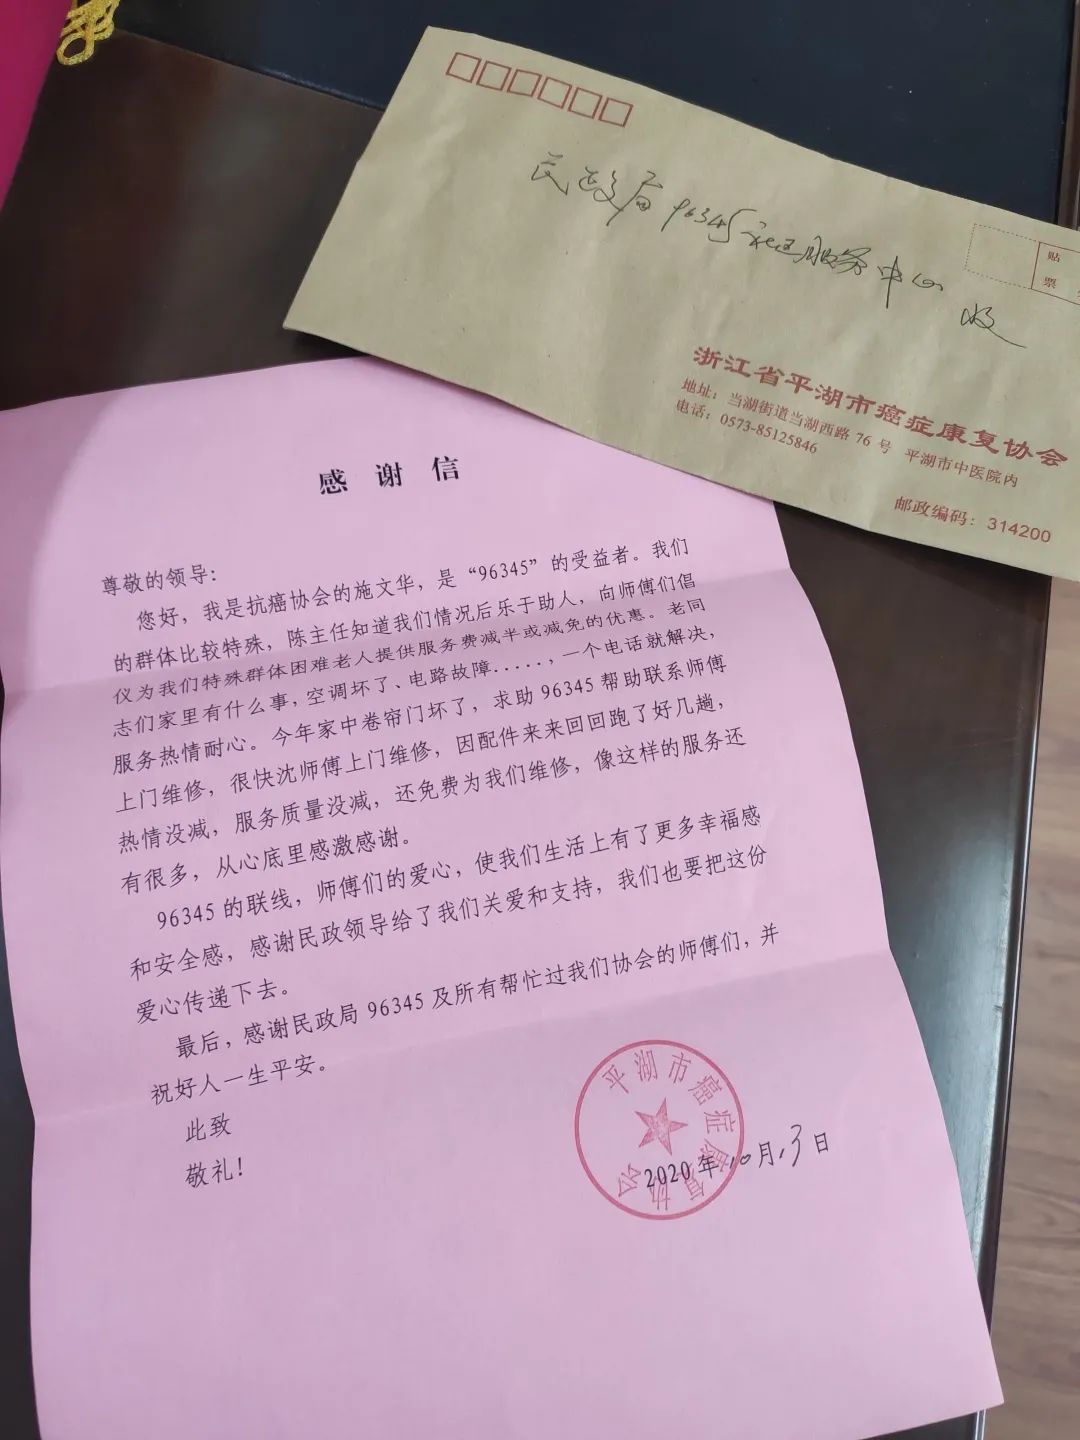 民政局96345社区服务中心 收
贴
票
浙江省平湖市癌症康复协会
地址：当湖街道当湖西路 76 号 平湖市中医院内
电话：0573-85125846
邮政编码：314200
感 谢 信
尊敬的领导：
您好，我是抗癌协会的施文华，是“96345”的受益者。我们
的群体比较特殊，陈主任知道我们情况后乐于助人，向师傅们倡
仪为我们特殊群体困难老人提供服务费减半或减免的优惠。老同
志们家里有什么事，空调坏了、电路故障.....，一个电话就解决，
服务热情耐心。今年家中卷帘门坏了，求助 96345 帮助联系师傅
上门维修，很快沈师傅上门维修，因配件来来回回跑了好几趟，
热情没减，服务质量没减，还免费为我们维修，像这样的服务还
有很多，从心底里感激感谢。
96345 的联线，师傅们的爱心，使我们生活上有了更多幸福感
和安全感，感谢民政领导给了我们关爱和支持，我们也要把这份
爱心传递下去。
最后，感谢民政局 96345 及所有帮忙过我们协会的师傅们，并
祝好人一生平安。
此致
敬礼！
平湖市癌症康复协会
2020年10月13日